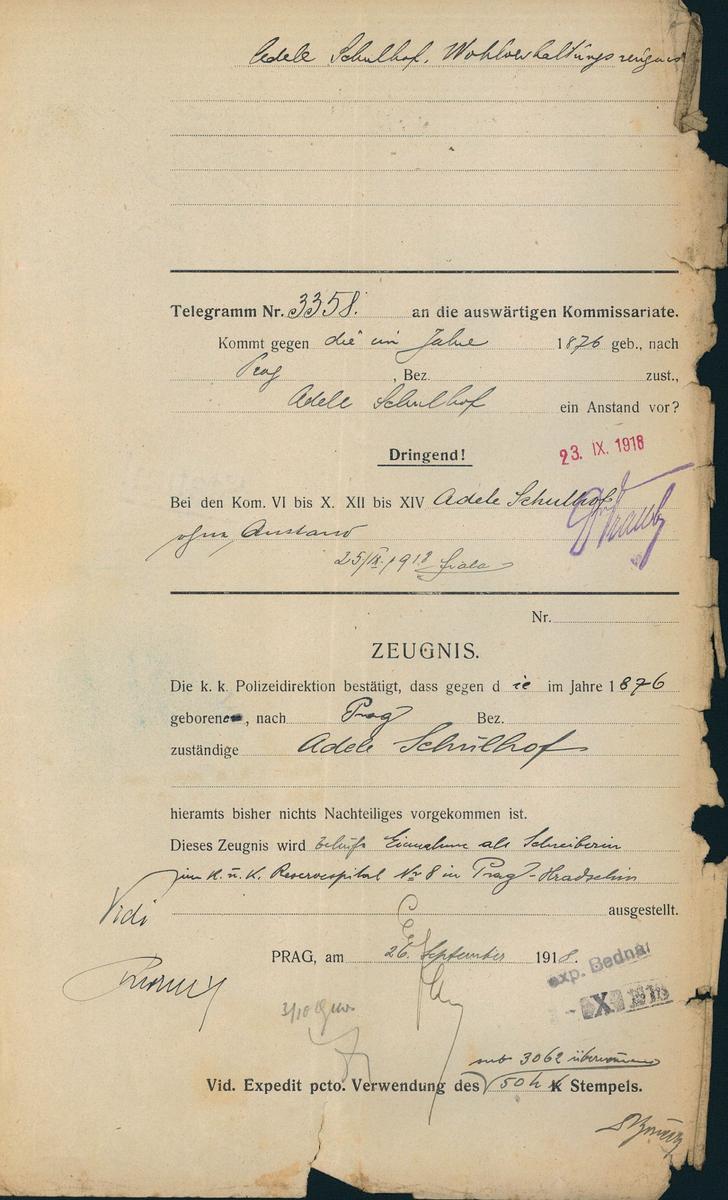 Adele Schulhof, Wohlverhaltungszeugnis
Telegramm Nr. 3358. an die auswärtigen Kommissariate.
Kommt gegen die im Jahre 1876 geb., nach
Prag, Bez. zust.,
Adele Schulhof ein Anstand vor?
Dringend!
23. IX. 1918
Bei den Kom. VI bis X. XII bis XIV Adele Schulhof
ohne Anstand
25/IX. 1918
Nr.
ZEUGNIS.
Die k. k. Polizeidirektion bestätigt, dass gegen die im Jahre 1876
geborene, nach Prag Bez.
zuständige Adele Schulhof
hieramts bisher nichts Nachteiliges vorgekommen ist.
Dieses Zeugnis wird behufs Einnahme als Schreiberin
im K. u. K. Reservespital Nr 8 in Prag-Hradschin
Vidi
ausgestellt.
PRAG, am 26. September 1918.
exp. Bednar
X 1918
3/10
sub 3062 übernommen
Vid. Expedit pcto. Verwendung des 50 h K Stempels.